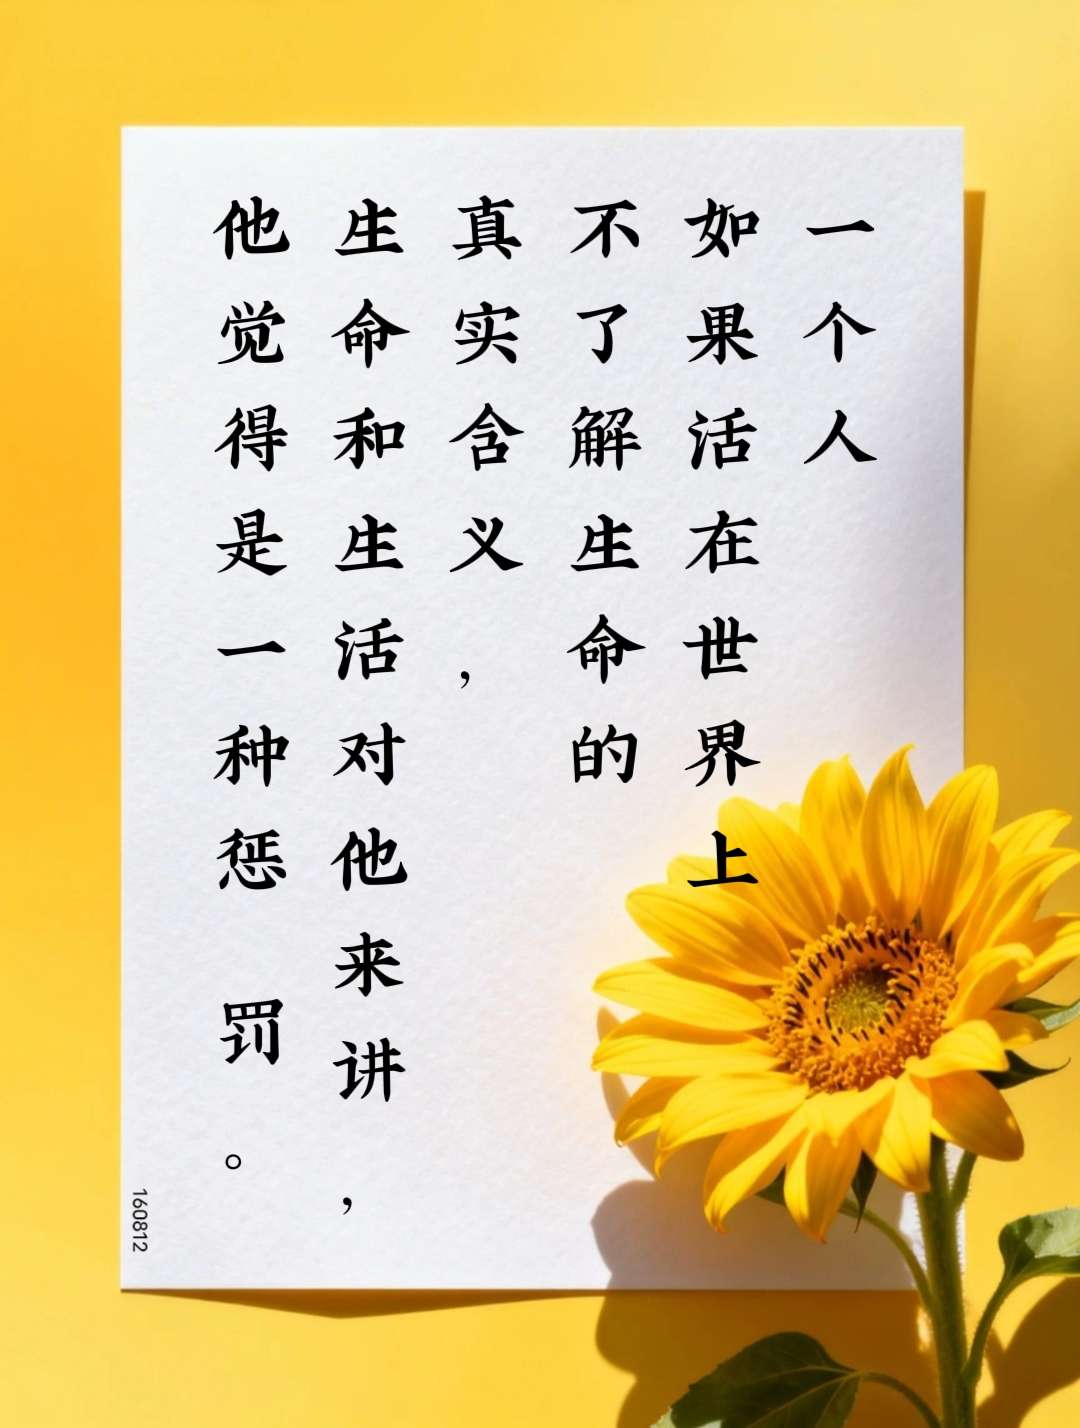 一个人
如果活在世界上
不了解生命的
真实含义，
生命和生活对他来讲，
他觉得是一种惩罚。
160812